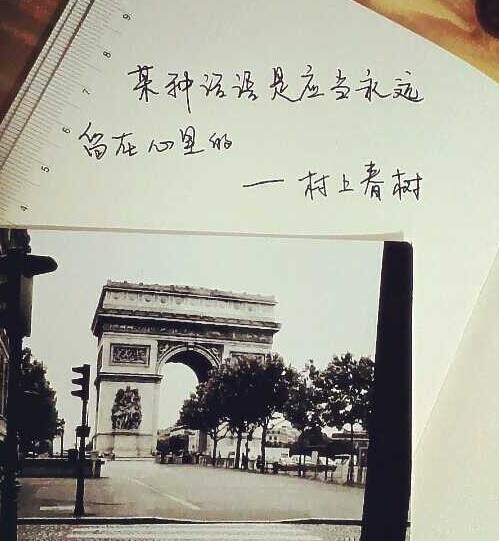 某种话语是应当永远
留在心里的
一村上春树
9
8
7
6
5
4